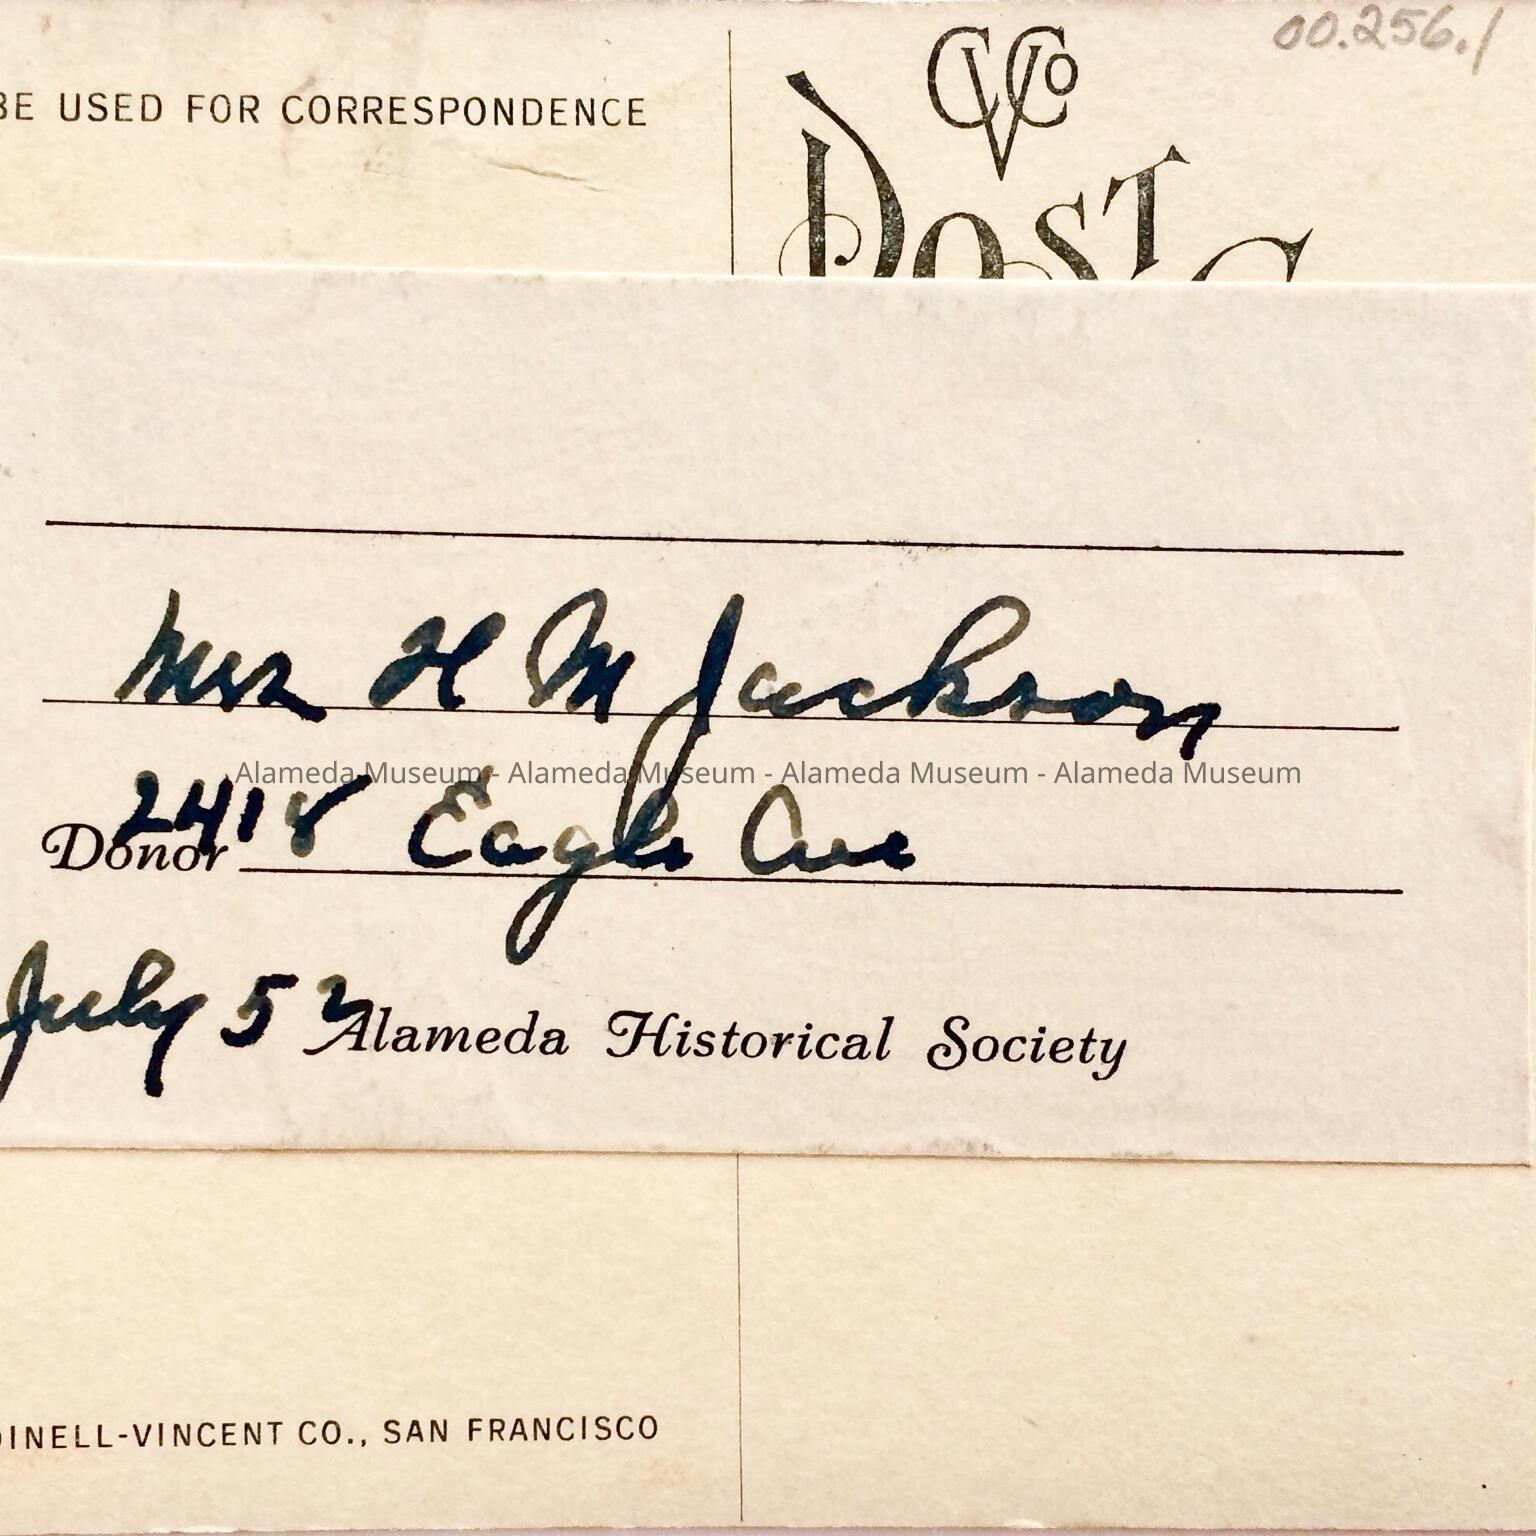 00.256.1
CVCo
BE USED FOR CORRESPONDENCE
POST C
Mrs H M Jackson
Alameda Museum - Alameda Museum - Alameda Museum - Alameda Museum
2418 Eagle Ave
Donor
July 52
Alameda Historical Society
DINELL-VINCENT CO., SAN FRANCISCO